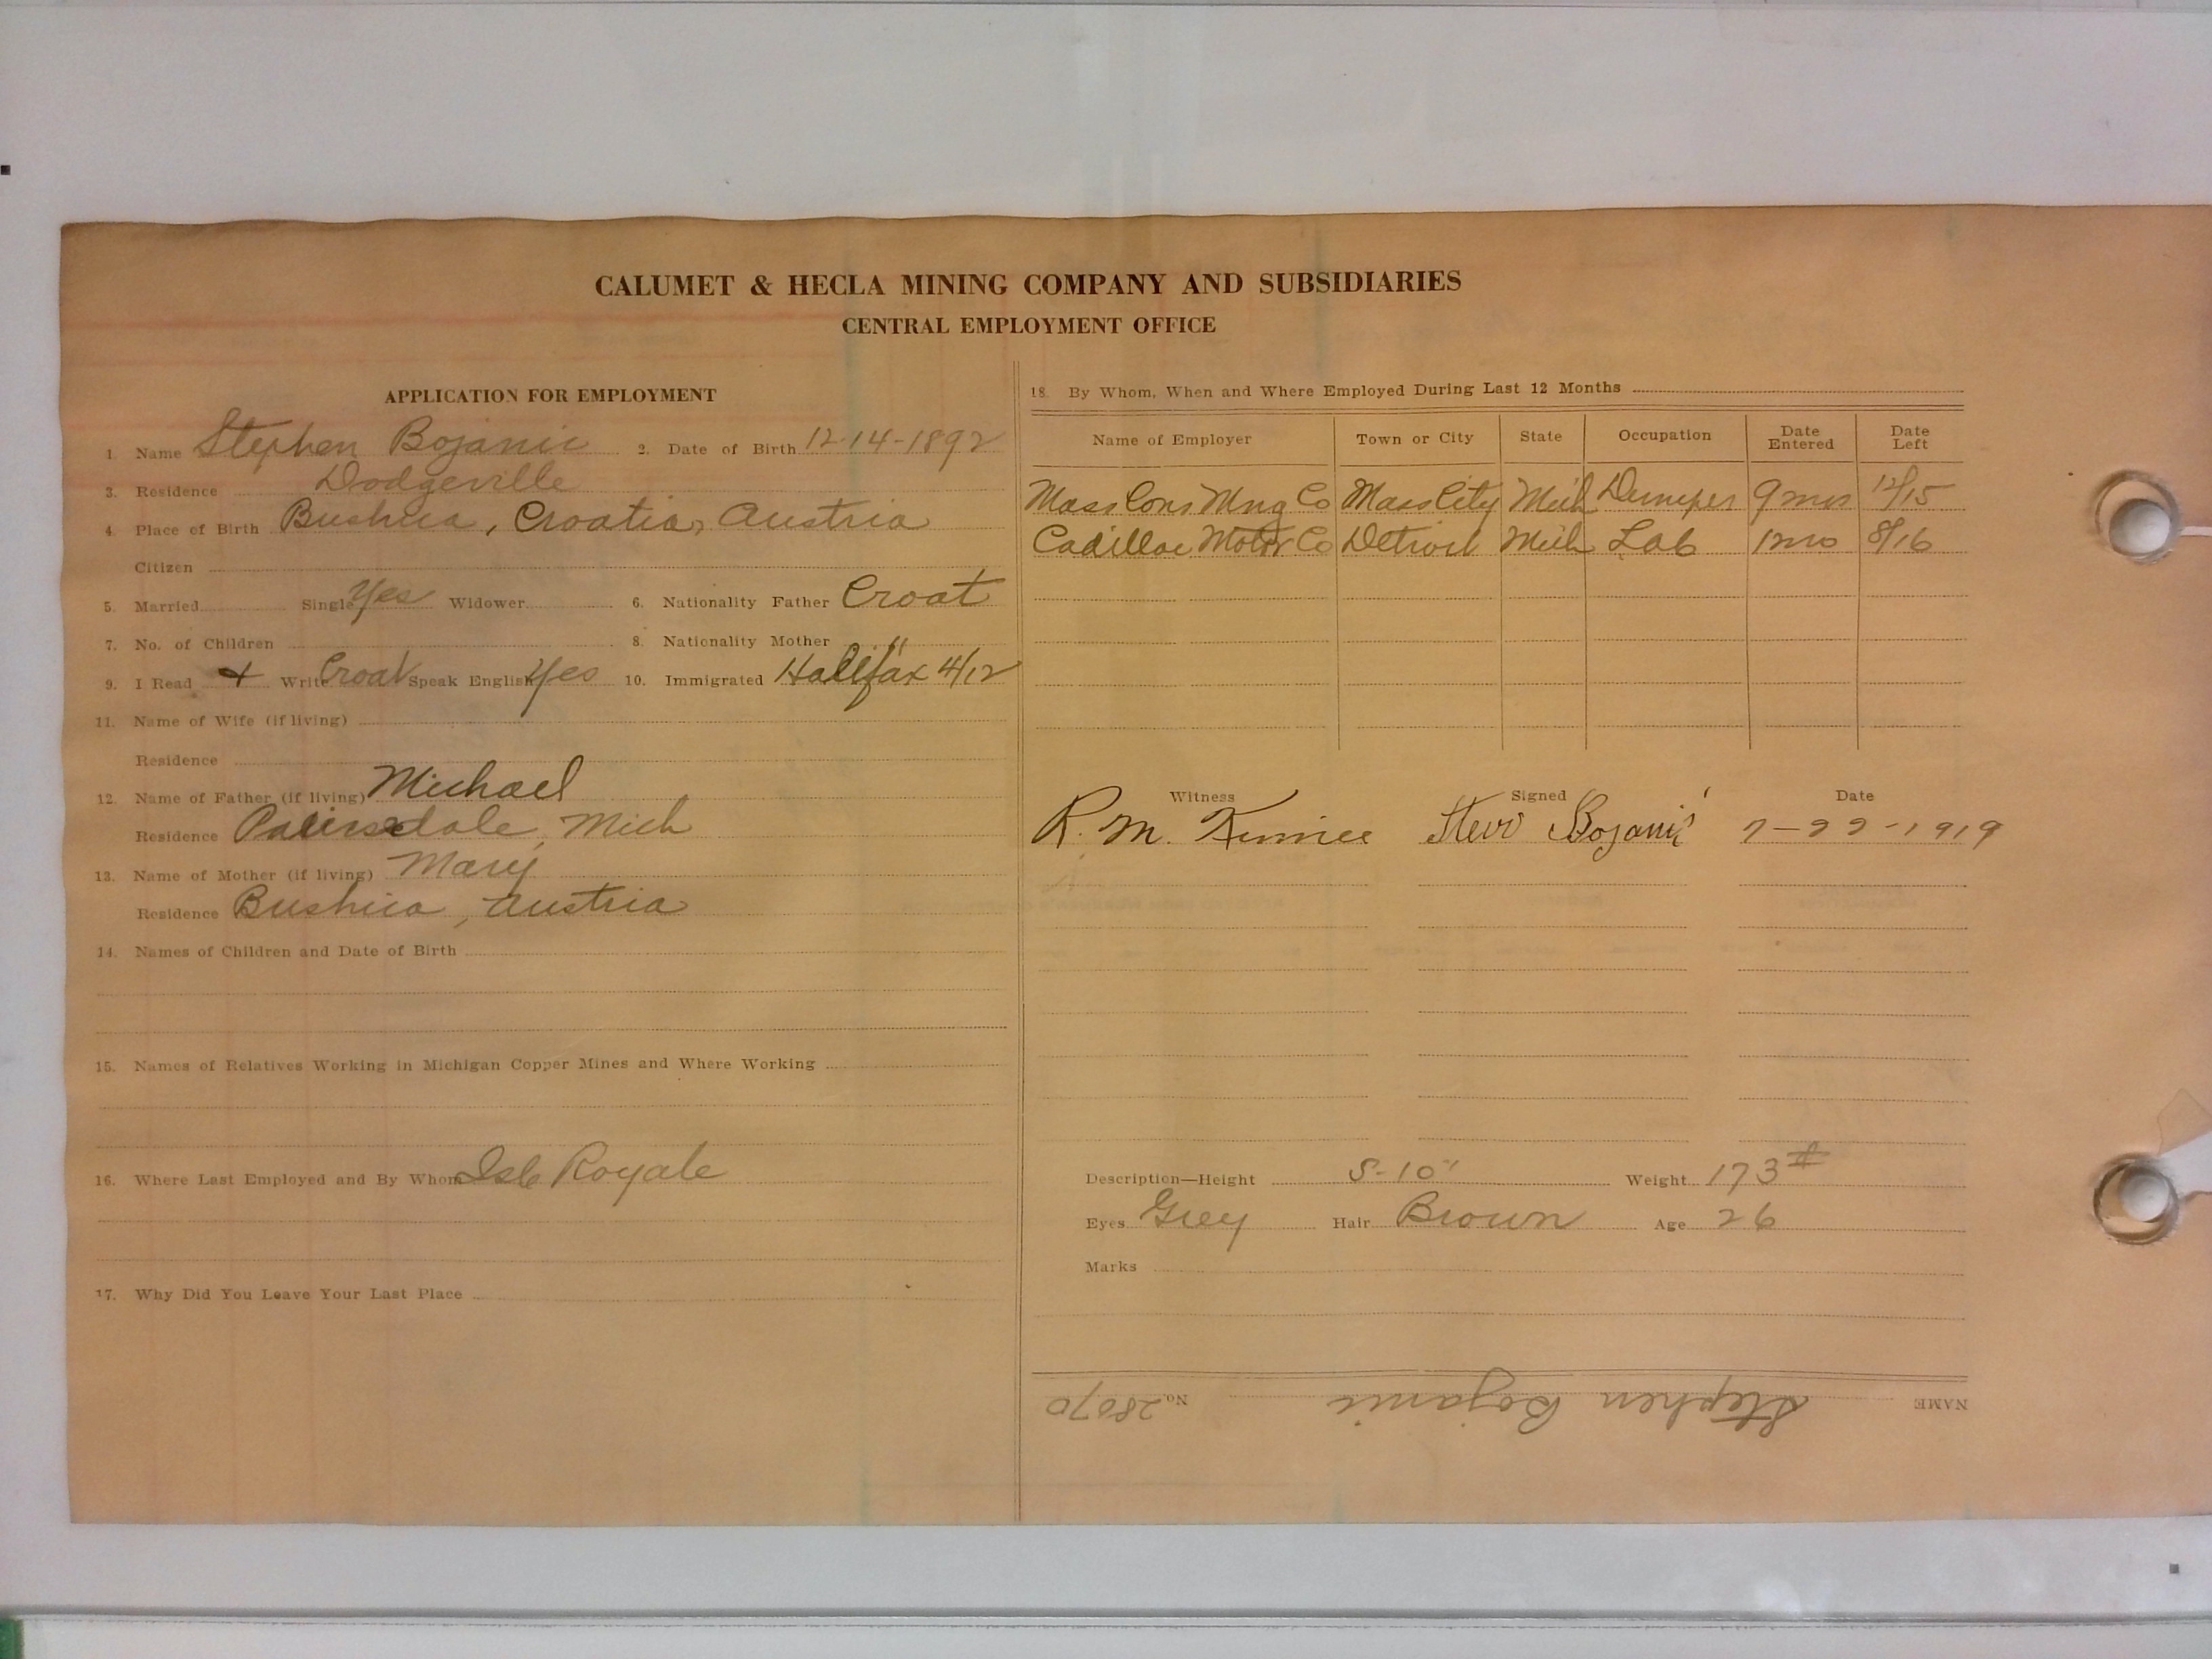 CALUMET & HECLA MINING COMPANY AND SUBSIDIARIES
CENTRAL EMPLOYMENT OFFICE
APPLICATION FOR EMPLOYMENT
1. Name Stephen Bojanic 2. Date of Birth 12-14-1892
3. Residence Dodgeville
4. Place of Birth Bushica, Croatia, Austria
Citizen
5. Married Single Yes Widower 6. Nationality Father Croat
7. No. of Children 8. Nationality Mother "
9. I Read + Write Croat Speak English Yes 10. Immigrated Halifax 4/12
11. Name of Wife (if living)
Residence
12. Name of Father (if living) Michael
Residence Painsdale, Mich
13. Name of Mother (if living) Mary
Residence Bushica, Austria
14. Names of Children and Date of Birth
15. Names of Relatives Working in Michigan Copper Mines and Where Working
16. Where Last Employed and By Whom Isle Royale
17. Why Did You Leave Your Last Place
18. By Whom, When and Where Employed During Last 12 Months
Name of Employer Town or City State Occupation Date Entered Date Left
Mass Cons Mng Co Mass City Mich Dumper 9 mos 12/15
Cadillac Motor Co Detroit Mich Lab 1 mo 8/16
Witness Signed Date
R. M. Stevo Bojanić 7-22-1919
Description—Height 5-10" Weight 173#
Eyes Grey Hair Brown Age 26
Marks
NAME Stephen Bojanic No. 28070